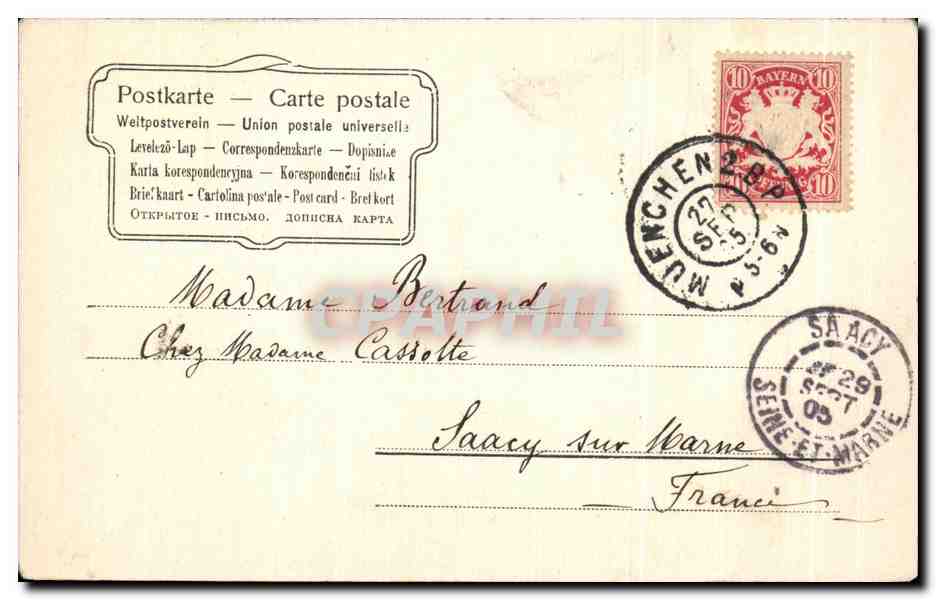 Postkarte — Carte postale
Weltpostverein — Union postale universelle
Levelező-Lap — Correspondenzkarte — Dopisnice
Karta korespondencyjna — Korespondenční listek
Briefkaart - Cartolina postale - Post card - Brefkort
ОТКРЫТОЕ - ПИСЬМО. ДОПИСНА КАРТА
10 BAYERN 10
10 PFENNIG 10
MUENCHEN 2. B.P.
27
SEP
05
5-6 N
Madame Bertrand
Chez Madame Cassotte
Saacy sur Marne
France
SAACY
29
SEPT
05
SEINE-ET-MARNE
CPAPHIL